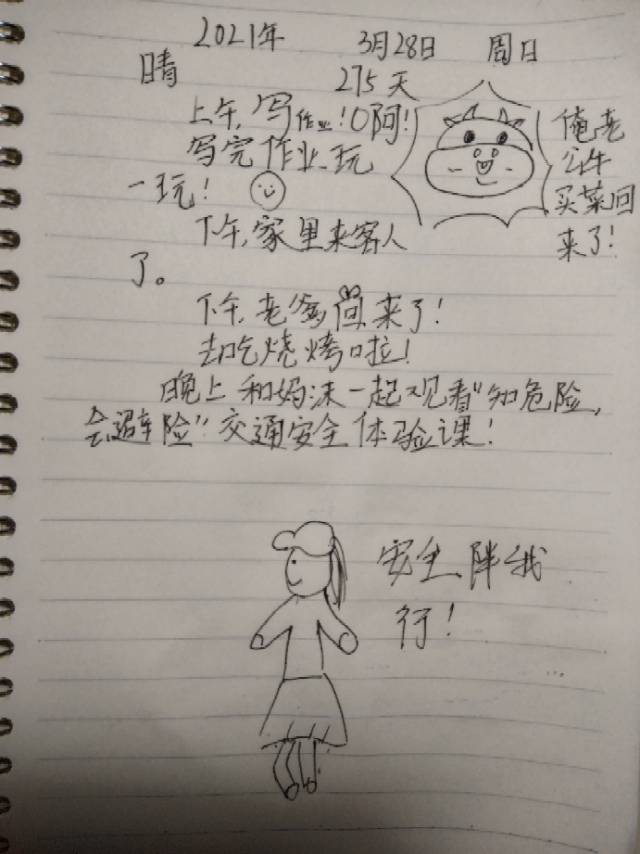 2021年 3月28日 周日
晴 275天
上午,写作业!O阿!
写完作业玩
一玩!
俺老
公牛
买菜回
来了!
下午,家里来客人
了。
下午,老爸回来了!
去吃烧烤啦!
晚上和妈沫一起观看"知危险,
会避险"交通安全体验课!
安全伴我
行!